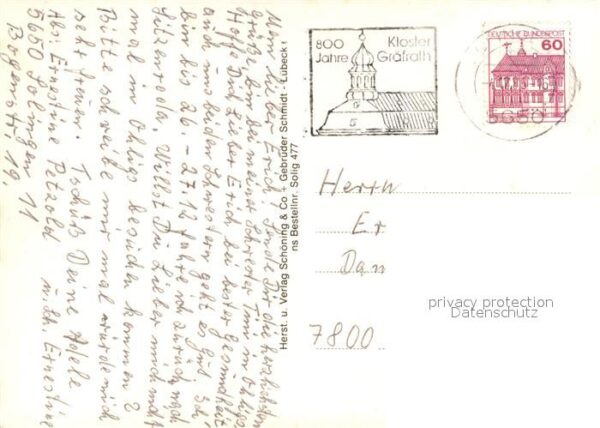 Mein lieber Erich! Sende Dir die herzlichsten
Grüße bin bei meiner Schwester Timi in Ohligs
Hoffe Du lieber Erich bei bester Gesundheit
auch uns beiden Schwestern geht es gut
bin bis 26. - 27.12 fahre ich zurück nach
Willst Du lieber mich nicht
mal in Ohligs besuchen kommen?
Bitte schreibe mir mal würde mich
sehr freuen. Tschüß Deine Adele
Abs. Ernestine Petzold u. Sch. Ernestine
5650 Solingen 11
Bogenstr. 19.
Herst. u. Verlag Schöning & Co + Gebrüder Schmidt - Lübeck
ns Bestellnr. Solig 477
800 Jahre
Kloster Gräfrath
DEUTSCHE BUNDESPOST
60
5650
Herrn
Er
Dan
7800
privacy protection
Datenschutz